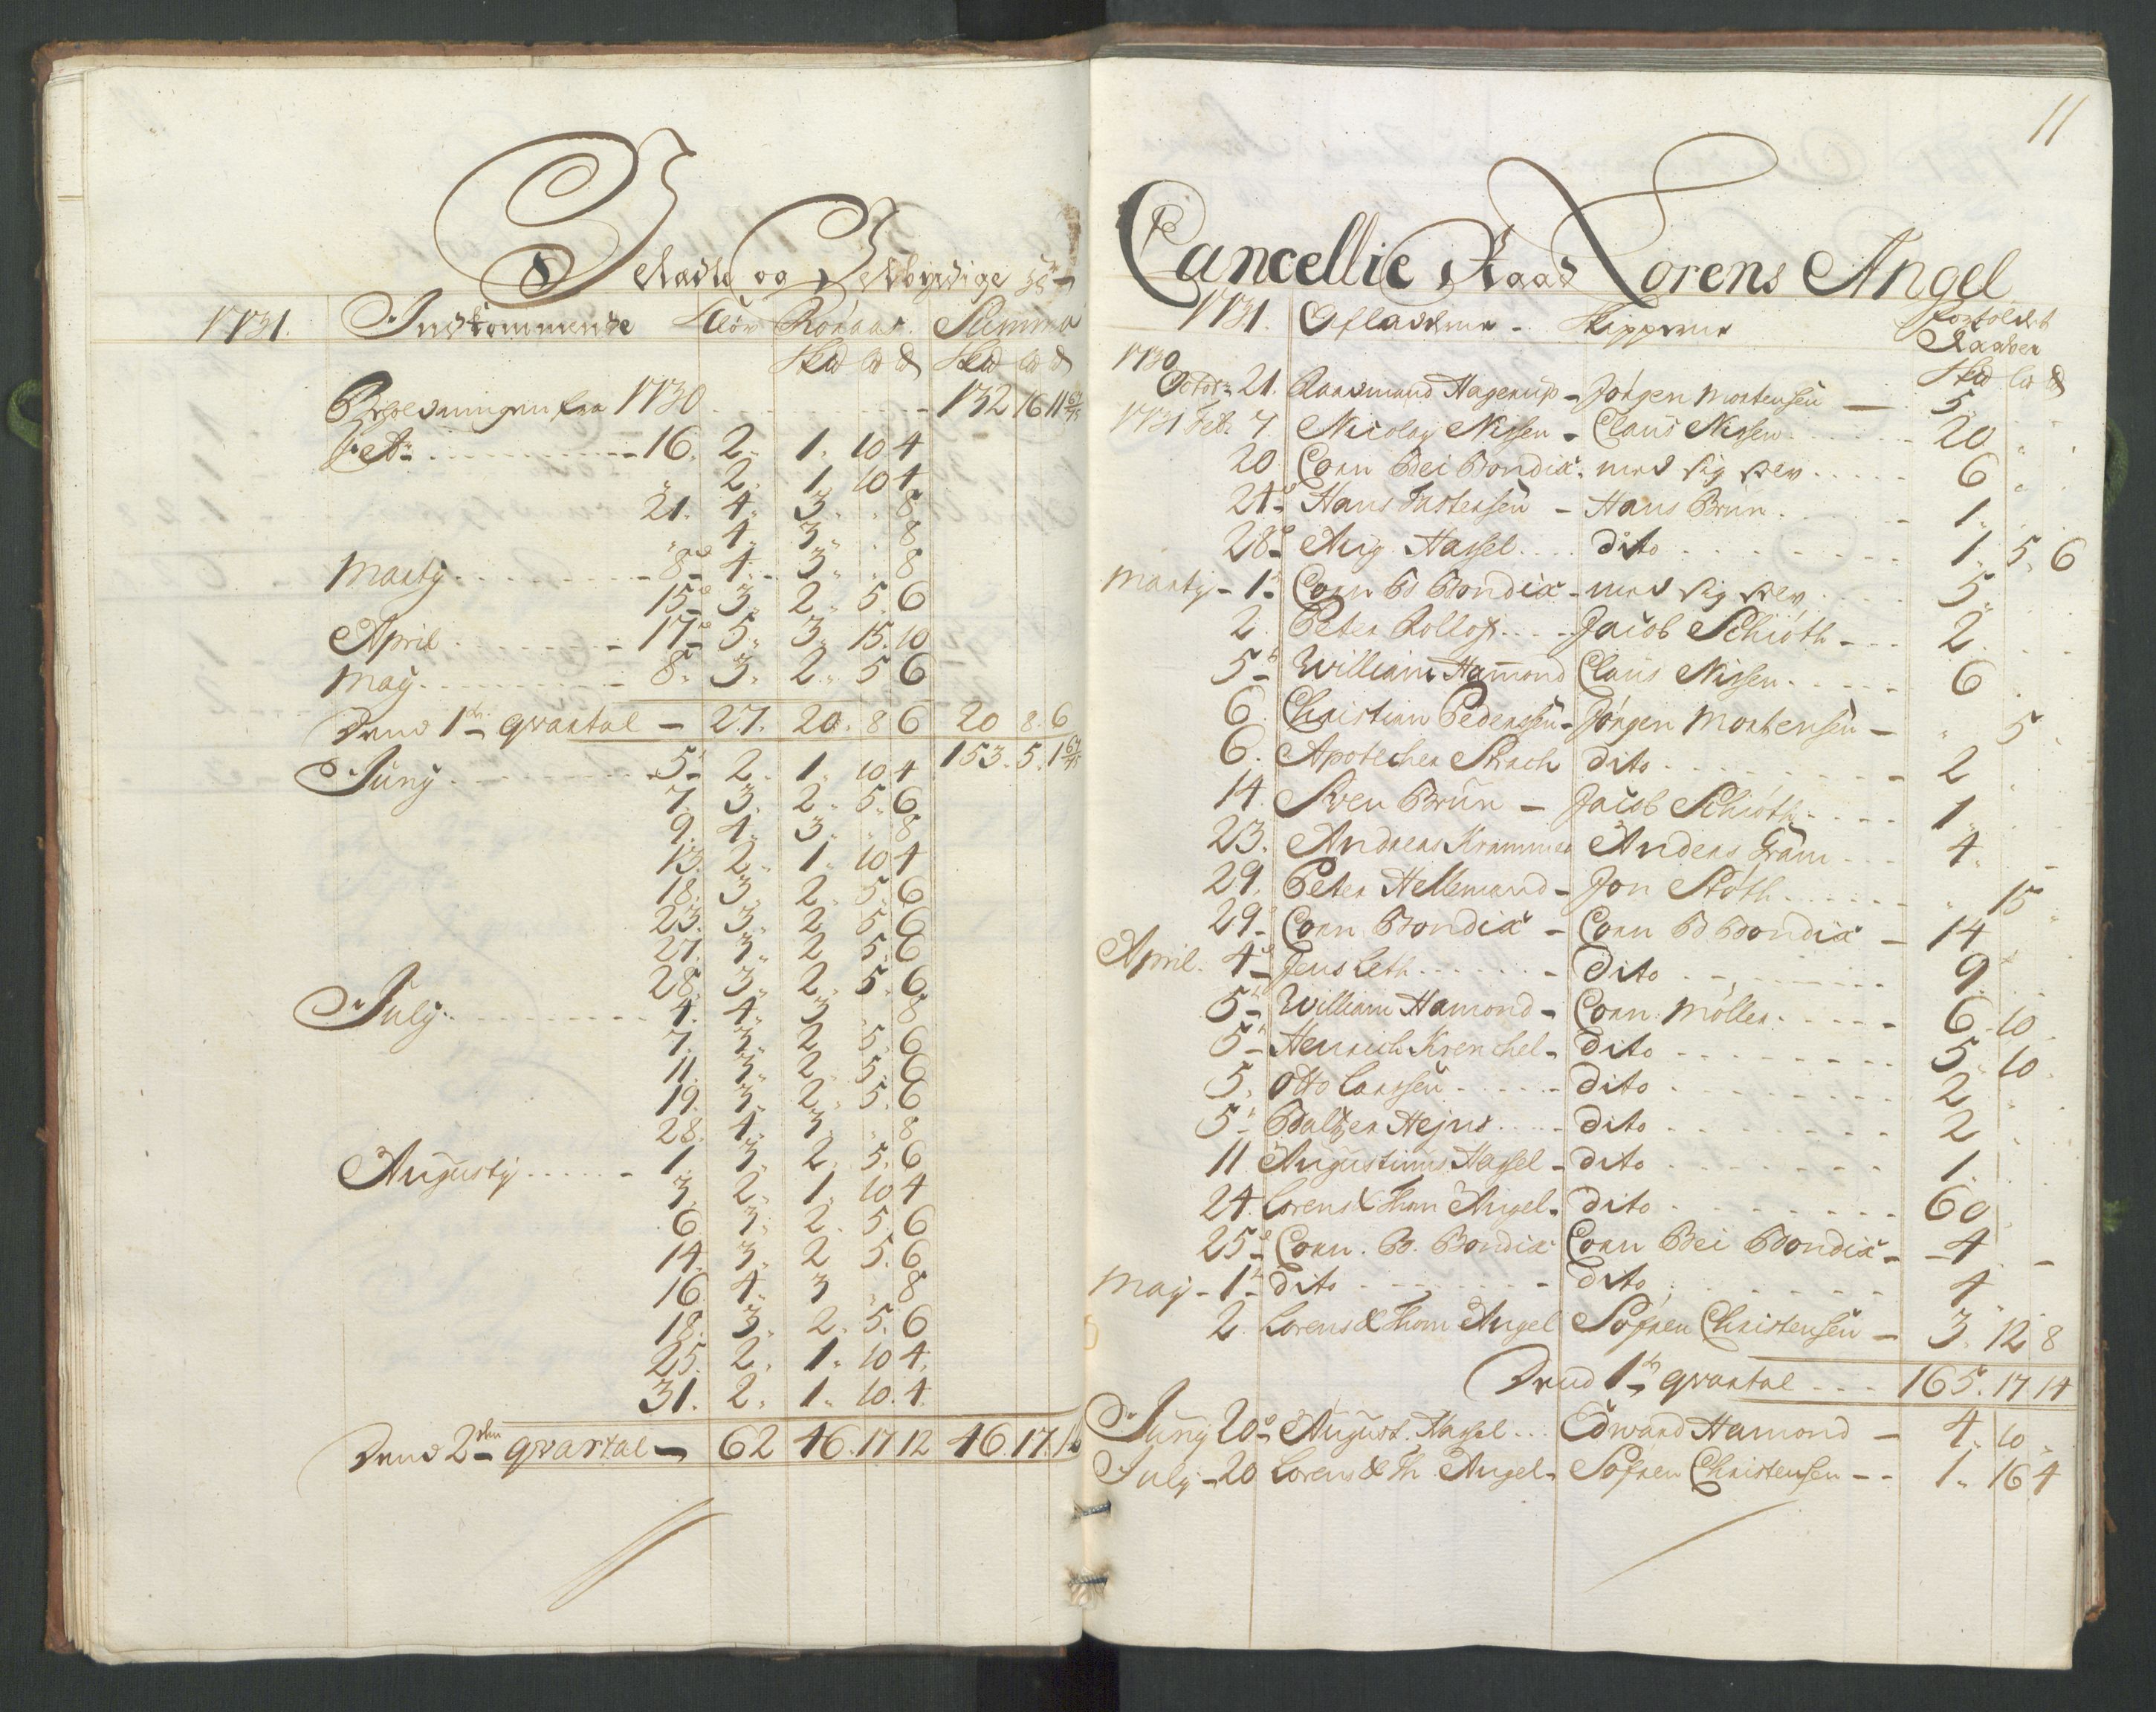 Ædle og Velbyrdige Hr
1731. Indkommende Kiör Kobber. Summa
Skd lb & Skd lb &
Beholdningen fra 1730 132 16 11 67/75
Feb: 16. 2. 1. 10 4
" 2. 1. 10 4
21. 4. 3. " 8
" 4. 3. " 8
Marty 8de 4. 3. " 8
15de 3. 2. 5. 6
April 17de 5. 3. 15. 10
May 8. 3. 2. 5 6
Dend 1te qvartal 27. 20. 8 6 20 8. 6
153. 5. 1 67/75
Juny 5t 2. 1. 10 4
7. 3. 2. 5. 6
9. 4. 3. " 8
13. 2. 1. 10 4
18. 3. 2. 5. 6
23. 3. 2 5 6
27. 3. 2 5. 6
28. 3. 2. 5. 6
July 4. 4. 3 8
7. 3. 2 5. 6
11. 3. 2. 5. 6
19. 3. 2. 5. 6
28. 4. 3. " 8
Augusty 1. 3. 2. 5. 6
3. 2. 1. 10. 4
6 3. 2. 5. 6
14. 3. 2 5. 6
16 4. 3 " 8
18. 3. 2. 5. 6
25. 2. 1. 10 4.
31. 2. 1. 10. 4
Dend 2den qvartal 62 46. 17 12 46. 17. 12
11
Cancellie Raad Lorens Angel
1731. Afladerne Skipperne Fortoldet
Kaaber
Skd lb &
1730
Octobr 21. Raadmand Hagerup Jörgen Mortensen 5.
1731 Feb. 7. Nicolay Nissen Claus Nissen 20
20 Corn Bei Bondix med sig selv 6
24de Hans Fastersen Hans Brun 1.
28de Aug Hassel dito 1. 5. 6
Marty 1t Corn B Bondix med sig selv 5.
2. Peter Kollof Jacob Schiöth 2
5t William Hamond Claus Nissen 6
6. Christian Pedersen Jörgen Mortensen " 5
6. Apotecher Strach dito 2
14. Sven Brun Jacob Schiöth 1.
23. Andreas Krammer Anders Gram 4.
29. Peter Hellemand Jon Stöth " 15
29. Corn Bondix Corn B Bondix 14
April. 4de Jens Leth dito 9
5t William Hamond Corn Möller 6. 10
5t Henrich Krenchel dito 5. 10
5. Otto Larssen dito 2
5t Baltzer Hejns dito 2
11 Augustinus Hassel dito 1.
24. Lorens & Thom Angel dito 60
25de Corn. B. Bondix Corn Bei Bondix 4
May 1t dito dito 4
2 Lorens & Thom Angel Sofren Christensen 3. 12 8
Dend 1te qvartal 165. 17 14
Juny 20de August. Hassel Edward Hamond 4. 10
July 20 Lorens & Th Angel Sofren Christensen 1. 16 4